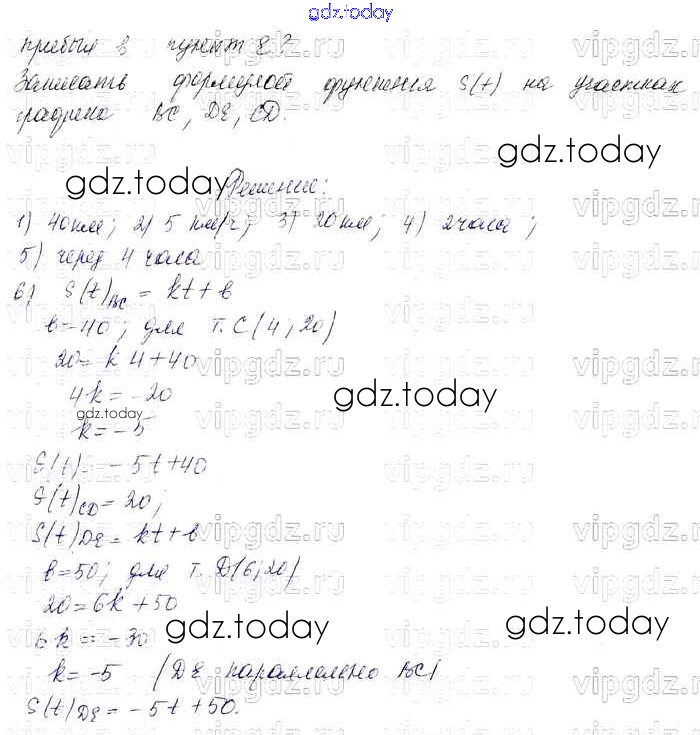 gdz.today
прибыл в пункт E?
Записать формулой функция S(t) на участках
графика BC, DE, CD.
Решение:
gdz.today
gdz.today
1) 40км; 2) 5 км/ч; 3) 20км; 4) 2 часа;
5) через 4 часа
6) S(t)BC = kt + b
b=40; для т. C(4; 20)
20 = k 4 + 40
4k = -20
gdz.today
gdz.today
k = -5
S(t) = -5t+40
S(t)CD = 20;
S(t)DE = kt + b
b=50; для т. D(6; 20)
20 = 6k + 50
gdz.today
gdz.today
6k = -30
k = -5 (DE параллельно BC)
S(t)DE = -5t + 50.
vipgdz.ru